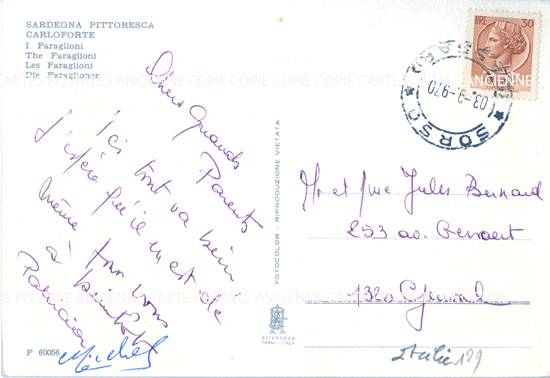 SARDEGNA PITTORESCA
CARLOFORTE
I Faraglioni
The Faraglioni
Les Faraglioni
Die Faraglionen
LIRE 30
SORSO
03-9-970
CARTE POSTALE ANCIENNE COPIE
Chers Grands
Parents
Ici tout va bien
J'espère qu'il en est de
même pour vous
à bientôt
Patricia
Michel
Mr et Me Jules Bernard
253 av.
1320
Italie 129
FOTOCOLOR - RIPRODUZIONE VIETATA
ALTEROCCA
TERNI - ITALY
F 60056